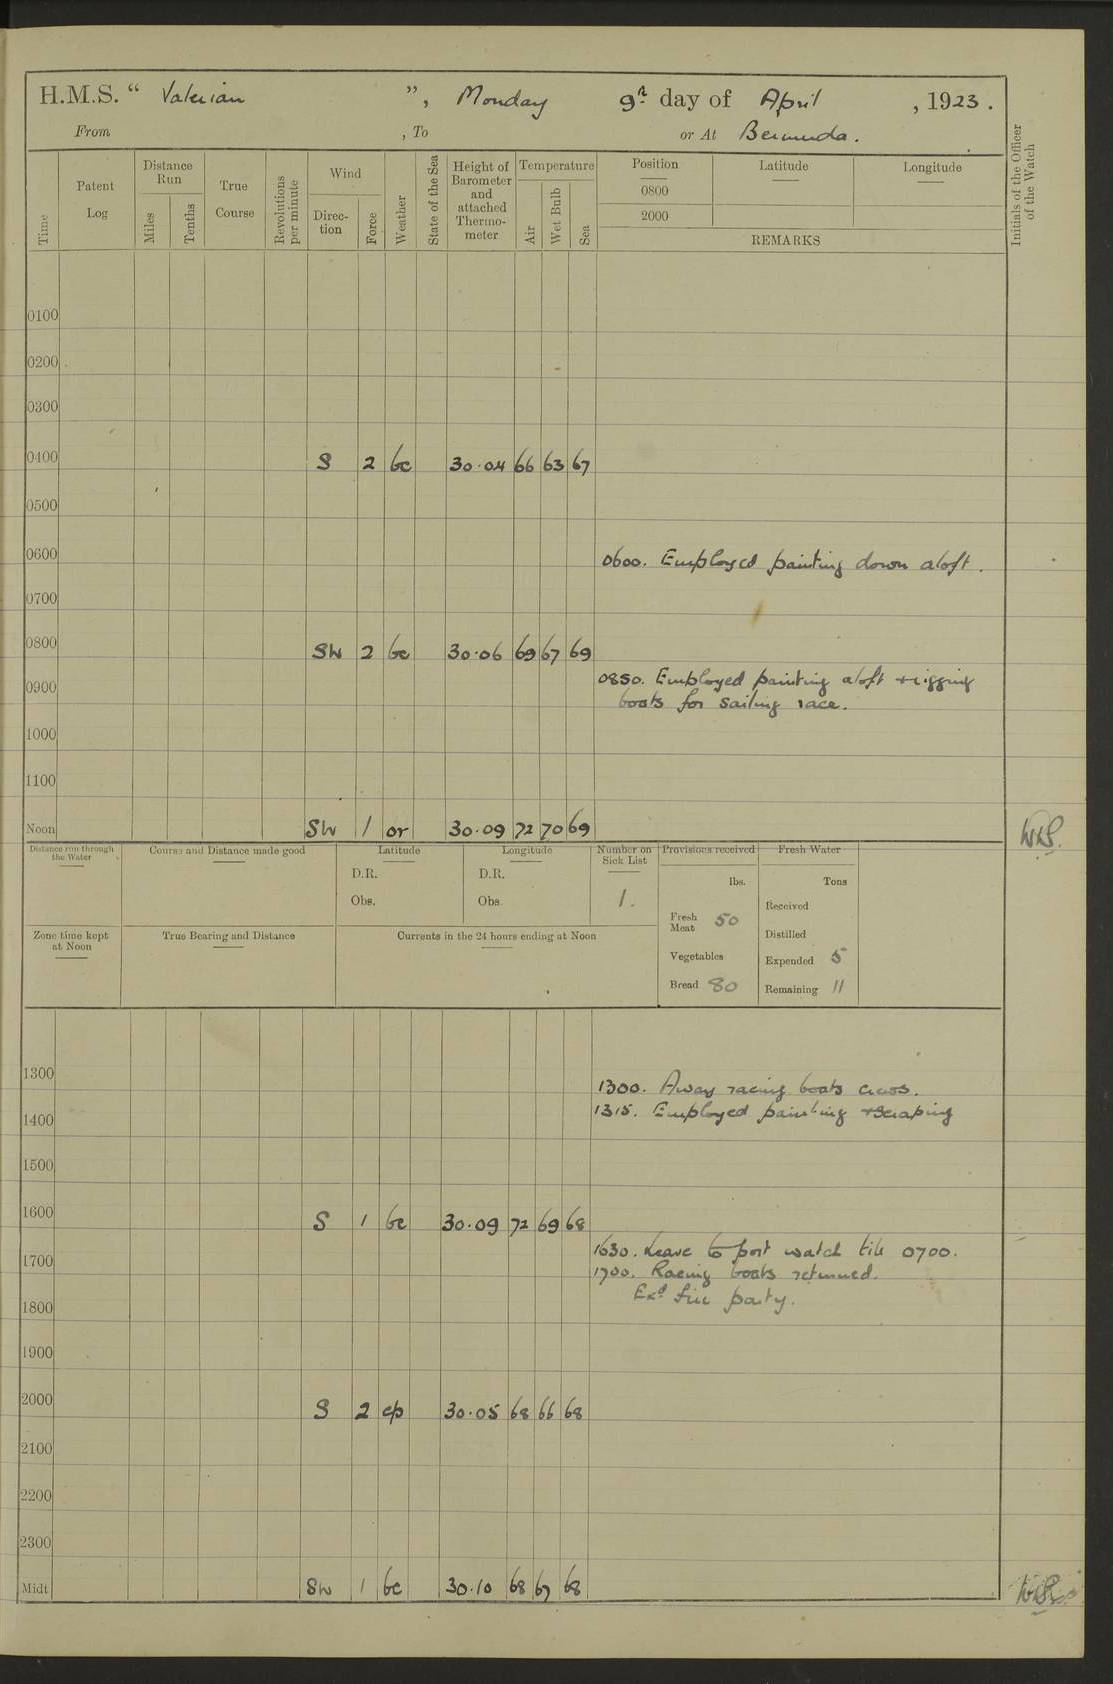 H.M.S. “ Valerian ”, Monday 9th day of April , 1923.
From , To or At Bermuda.
Time
Patent Log
Distance Run
Miles
Tenths
True Course
Revolutions per minute
Wind
Direc-tion
Force
Weather
State of the Sea
Height of Barometer and attached Thermo-meter
Temperature
Air
Wet Bulb
Sea
Position
Latitude
Longitude
0800
2000
REMARKS
Initials of the Officer of the Watch
0100
0200
0300
0400 S 2 bc 30.04 66 63 67
0500
0600 0600. Employed painting down aloft.
0700
0800 SW 2 bc 30.06 69 67 69
0850. Employed painting aloft + rigging
0900 boats for sailing race.
1000
1100
Noon SW 1 or 30.09 72 70 69
Distance run through the Water
Course and Distance made good
Latitude
D.R.
Obs.
Longitude
D.R.
Obs.
Number on Sick List
1.
Provisions received
lbs.
Fresh Meat 50
Vegetables
Bread 80
Fresh Water
Tons
Received
Distilled
Expended 5
Remaining 11
Zone time kept at Noon
True Bearing and Distance
Currents in the 24 hours ending at Noon
1300 1300. Away racing boats crews.
1400 1315. Employed painting + scraping
1500
1600 S 1 bc 30.09 72 69 68
1630. Leave to port watch till 0700.
1700 1700. Racing boats returned.
Exd fire party.
1800
1900
2000 S 2 cp 30.05 68 66 68
2100
2200
2300
Midt SW 1 bc 30.10 68 67 68